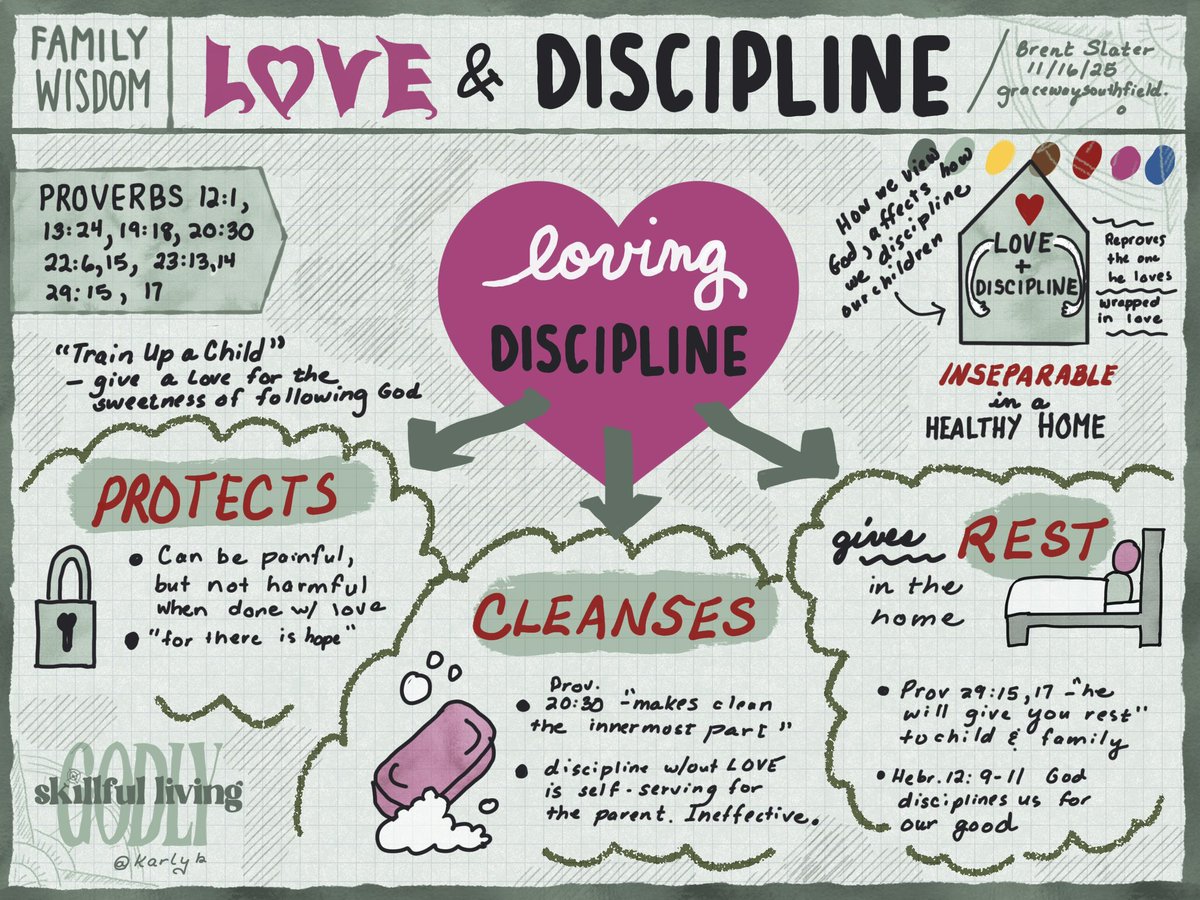 FAMILY
WISDOM
LOVE & DISCIPLINE
Brent Slater
11/16/25
gracewaysouthfield.
o
PROVERBS 12:1,
13:24, 19:18, 20:30
22:6,15, 23:13,14
29:15, 17
loving
DISCIPLINE
How we view
God, affects how
we discipline
our children
LOVE
+
DISCIPLINE
Reproves
the one
he loves
wrapped
in love
INSEPARABLE
in a
HEALTHY HOME
"Train Up a Child"
- give a love for the
sweetness of following God
PROTECTS
• Can be painful,
but not harmful
when done w/ love
• "for there is hope"
CLEANSES
• Prov.
20:30 - "makes clean
the innermost part"
• discipline w/out LOVE
is self-serving for
the parent. Ineffective.
gives REST
in the
home
• Prov 29:15,17 - "he
will give you rest"
to child & family
• Hebr. 12: 9-11 God
disciplines us for
our good
GODLY
skillful living
@karlyb